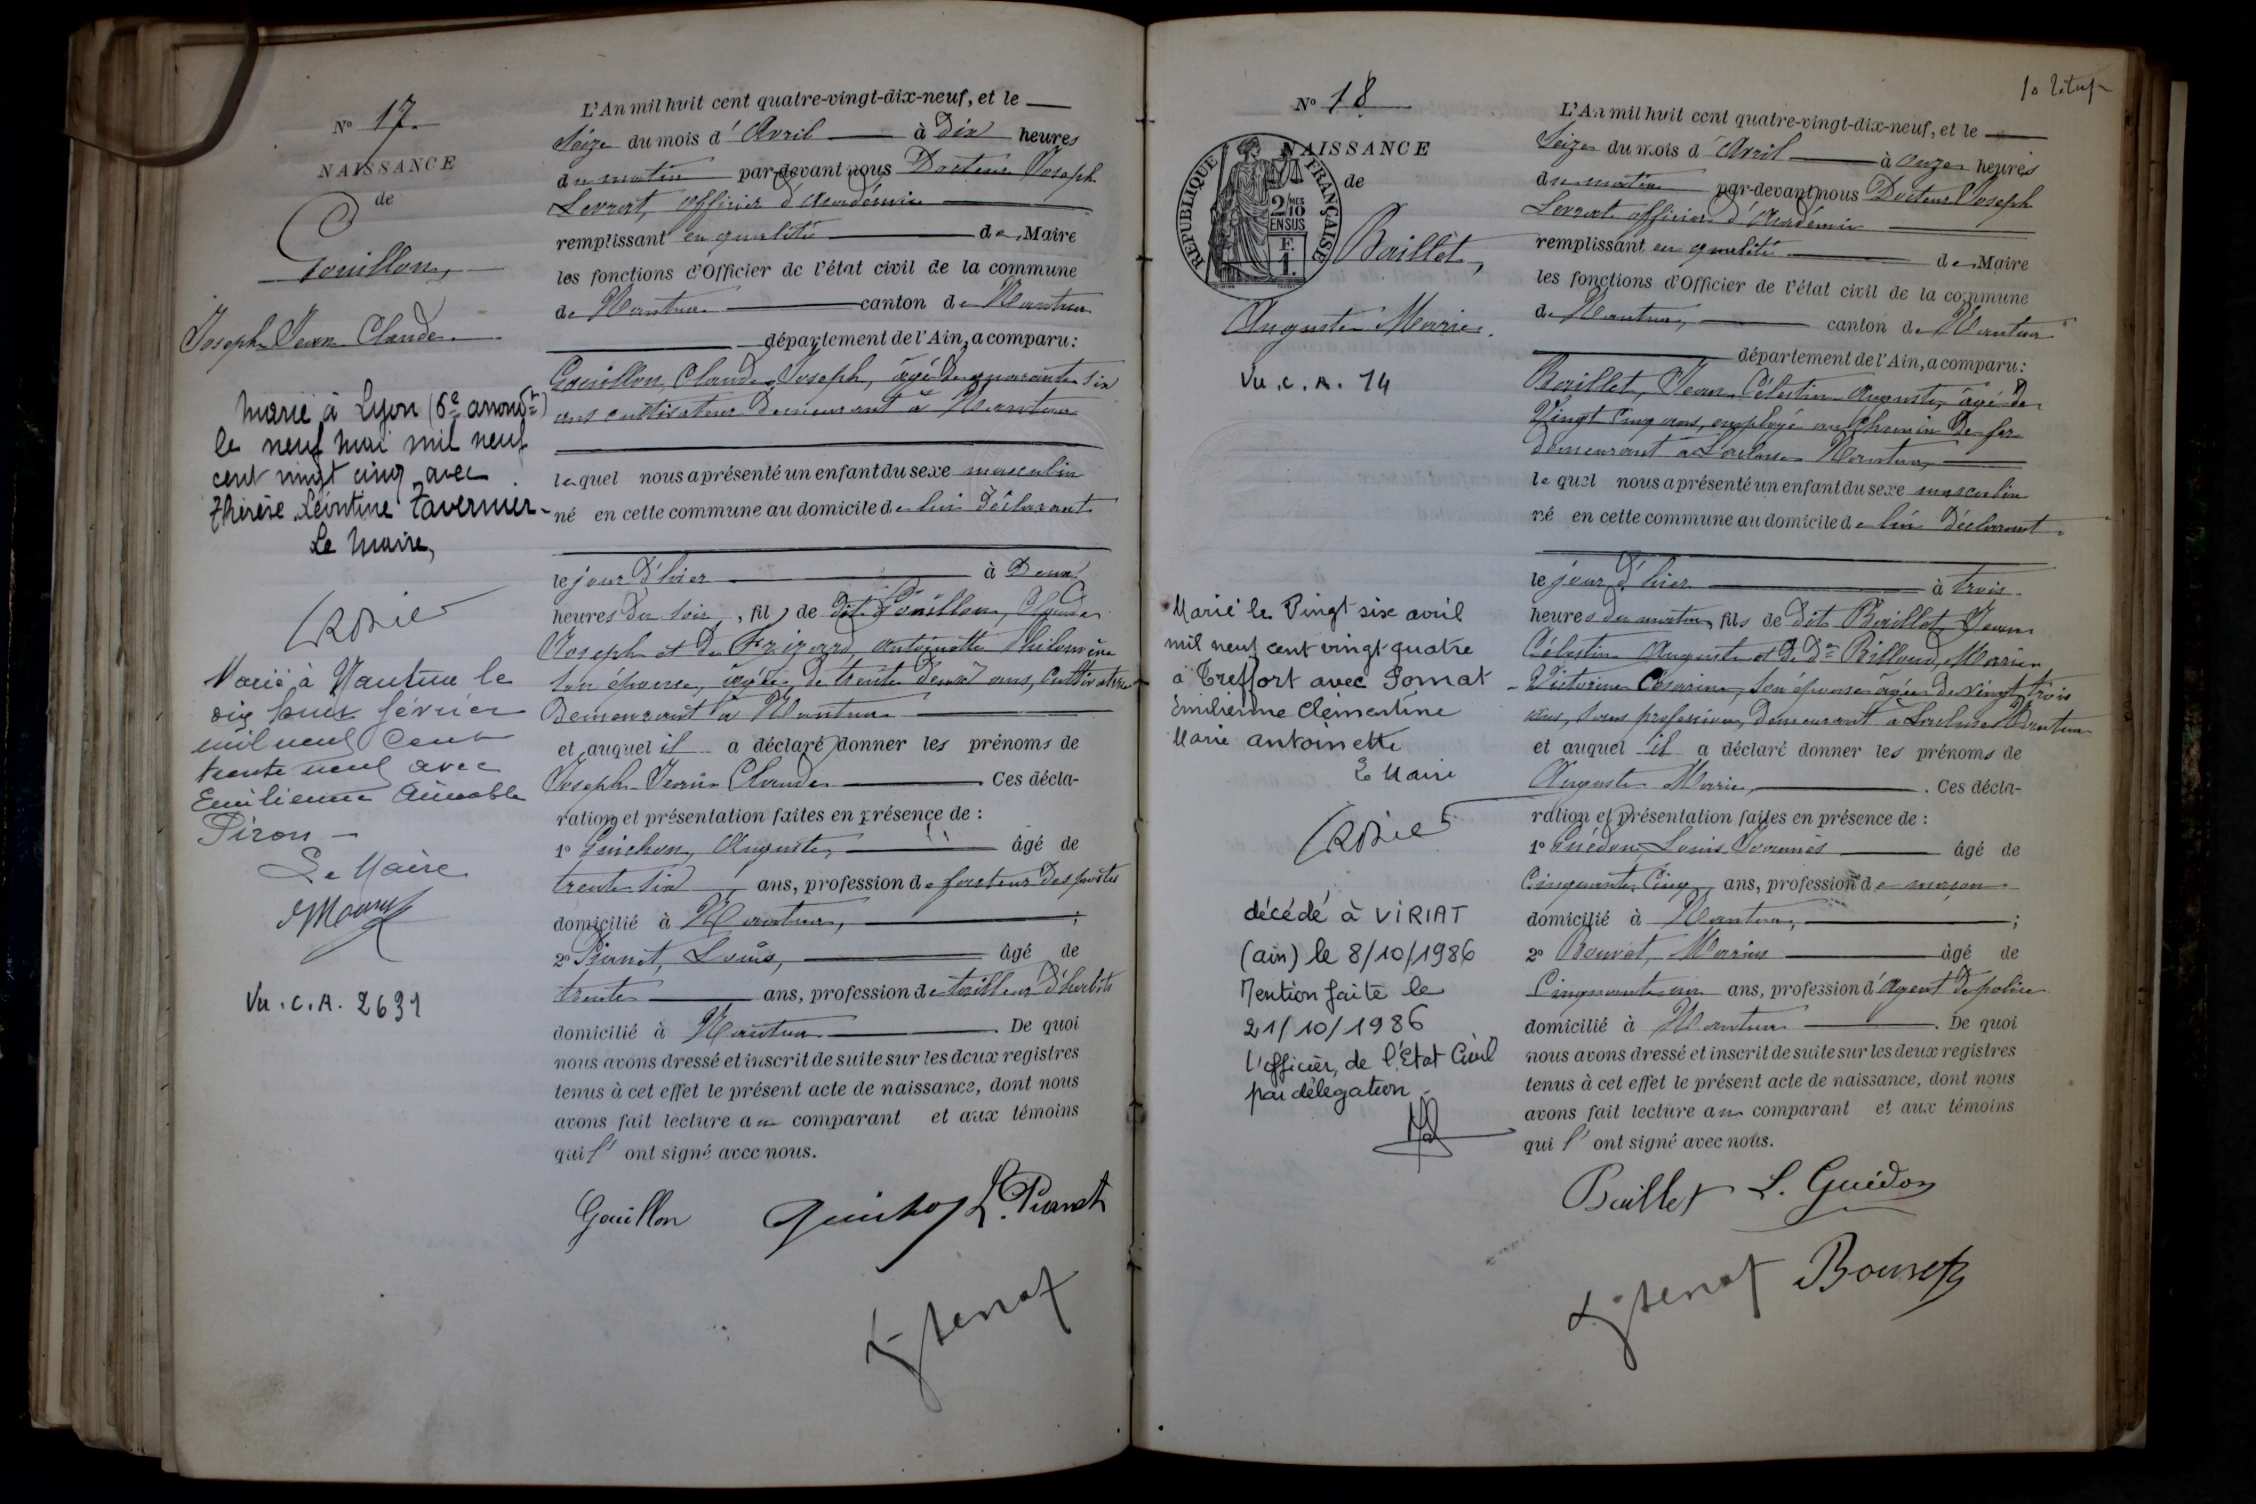 N° 17.
NAISSANCE
de
Gouillon,
Joseph Jean Claude
marié à Lyon (6e arrondt)
le neuf mai mil neuf
cent vingt cinq avec
Thérèse Léontine Tavernier
Le Maire,
Marié à Nantua le
dix huit février
mil neuf cent
trente neuf avec
Emilienne Aimable
Piron
Le Maire
Vu. C. A. 2631
L'An mil huit cent quatre-vingt-dix-neuf, et le
Seize du mois d'Avril à dix heures
du matin par-devant nous Docteur Joseph
Levrat, officier d'Académie
remplissant en qualité de Maire
les fonctions d'Officier de l'état civil de la commune
de Nantua canton de Nantua
département de l'Ain, a comparu :
Gouillon, Claude Joseph, âgé de quarante six
ans cultivateur demeurant à Nantua
lequel nous a présenté un enfant du sexe masculin
né en cette commune au domicile de lui déclarant
le jour d'hier à Deux
heures du soir, fils de dit Gouillon, Claude
Joseph et de Frizard, Antoinette Philomène
son épouse, âgée de trente deux ans, Cultivatrice
demeurant à Nantua
et auquel il a déclaré donner les prénoms de
Joseph Jean Claude Ces décla-
ration et présentation faites en présence de :
1° Guichon, Auguste, âgé de
trente six ans, profession de facteur des postes
domicilié à Nantua, ;
2° Pianet, Louis, âgé de
trente ans, profession de tailleur d'habits
domicilié à Nantua . De quoi
nous avons dressé et inscrit de suite sur les deux registres
tenus à cet effet le présent acte de naissance, dont nous
avons fait lecture au comparant et aux témoins
qui l'ont signé avec nous.
Gouillon Guichon L. Pianet
N° 18
NAISSANCE
de
REPUBLIQUE FRANÇAISE
2/10 MES
EN SUS
F.
1.
Baillet,
Auguste Marie.
Vu. C. A. 14
Marié le Vingt six avril
mil neuf cent vingt quatre
à Treffort avec Pomat
Emilienne Clémentine
Marie Antoinette
Le Maire
décédé à VIRIAT
(ain) le 8/10/1986
Mention faite le
21/10/1986
l'officier de l'Etat Civil
par délégation
L'An mil huit cent quatre-vingt-dix-neuf, et le
Seize du mois d'Avril à onze heures
du matin par-devant nous Docteur Joseph
Levrat officier d'Académie
remplissant en qualité de Maire
les fonctions d'Officier de l'état civil de la commune
de Nantua, canton de Nantua
département de l'Ain, a comparu :
Baillet, Jean Célestin Auguste, âgé de
Vingt Cinq ans, employé au chemin de fer
demeurant à Nantua
lequel nous a présenté un enfant du sexe masculin
né en cette commune au domicile de lui déclarant
le jour d'hier à trois
heures du matin, fils de dit Baillet Jean
Célestin Auguste et de De Billoud, Marie
Victorine Césarine, son épouse âgée de vingt trois
ans, sans profession, demeurant à Nantua
et auquel il a déclaré donner les prénoms de
Auguste Marie, . Ces décla-
ration et présentation faites en présence de :
1° Guédon, Louis Joannès âgé de
Cinquante Cinq ans, profession de maçon
domicilié à Nantua, ;
2° Bouvet, Marius âgé de
Cinquante un ans, profession d'Agent de police
domicilié à Nantua . De quoi
nous avons dressé et inscrit de suite sur les deux registres
tenus à cet effet le présent acte de naissance, dont nous
avons fait lecture au comparant et aux témoins
qui l'ont signé avec nous.
Baillet L. Guédon
Bouvet